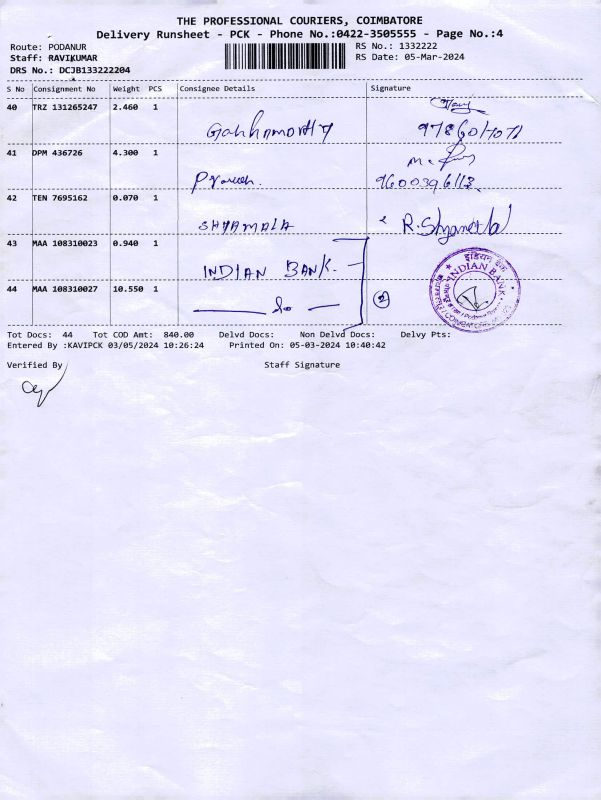 THE PROFESSIONAL COURIERS, COIMBATORE
Delivery Runsheet - PCK - Phone No.:0422-3505555 - Page No.:4
Route: PODANUR
RS No.: 1332222
Staff: RAVIKUMAR
RS Date: 05-Mar-2024
DRS No.: DCJB133222204
S No Consignment No Weight PCS Consignee Details Signature
40 TRZ 131265247 2.460 1
41 DPM 436726 4.300 1
9600396113
42 TEN 7695162 0.070 1
SHYAMALA R. Shyamala
43 MAA 108310023 0.940 1
INDIAN BANK.
44 MAA 108310027 10.550 1
— do — 2
इंडियन बैंक
INDIAN BANK
Tot Docs: 44 Tot COD Amt: 840.00 Delvd Docs: Non Delvd Docs: Delvy Pts:
Entered By :KAVIPCK 03/05/2024 10:26:24 Printed On: 05-03-2024 10:40:42
Verified By Staff Signature